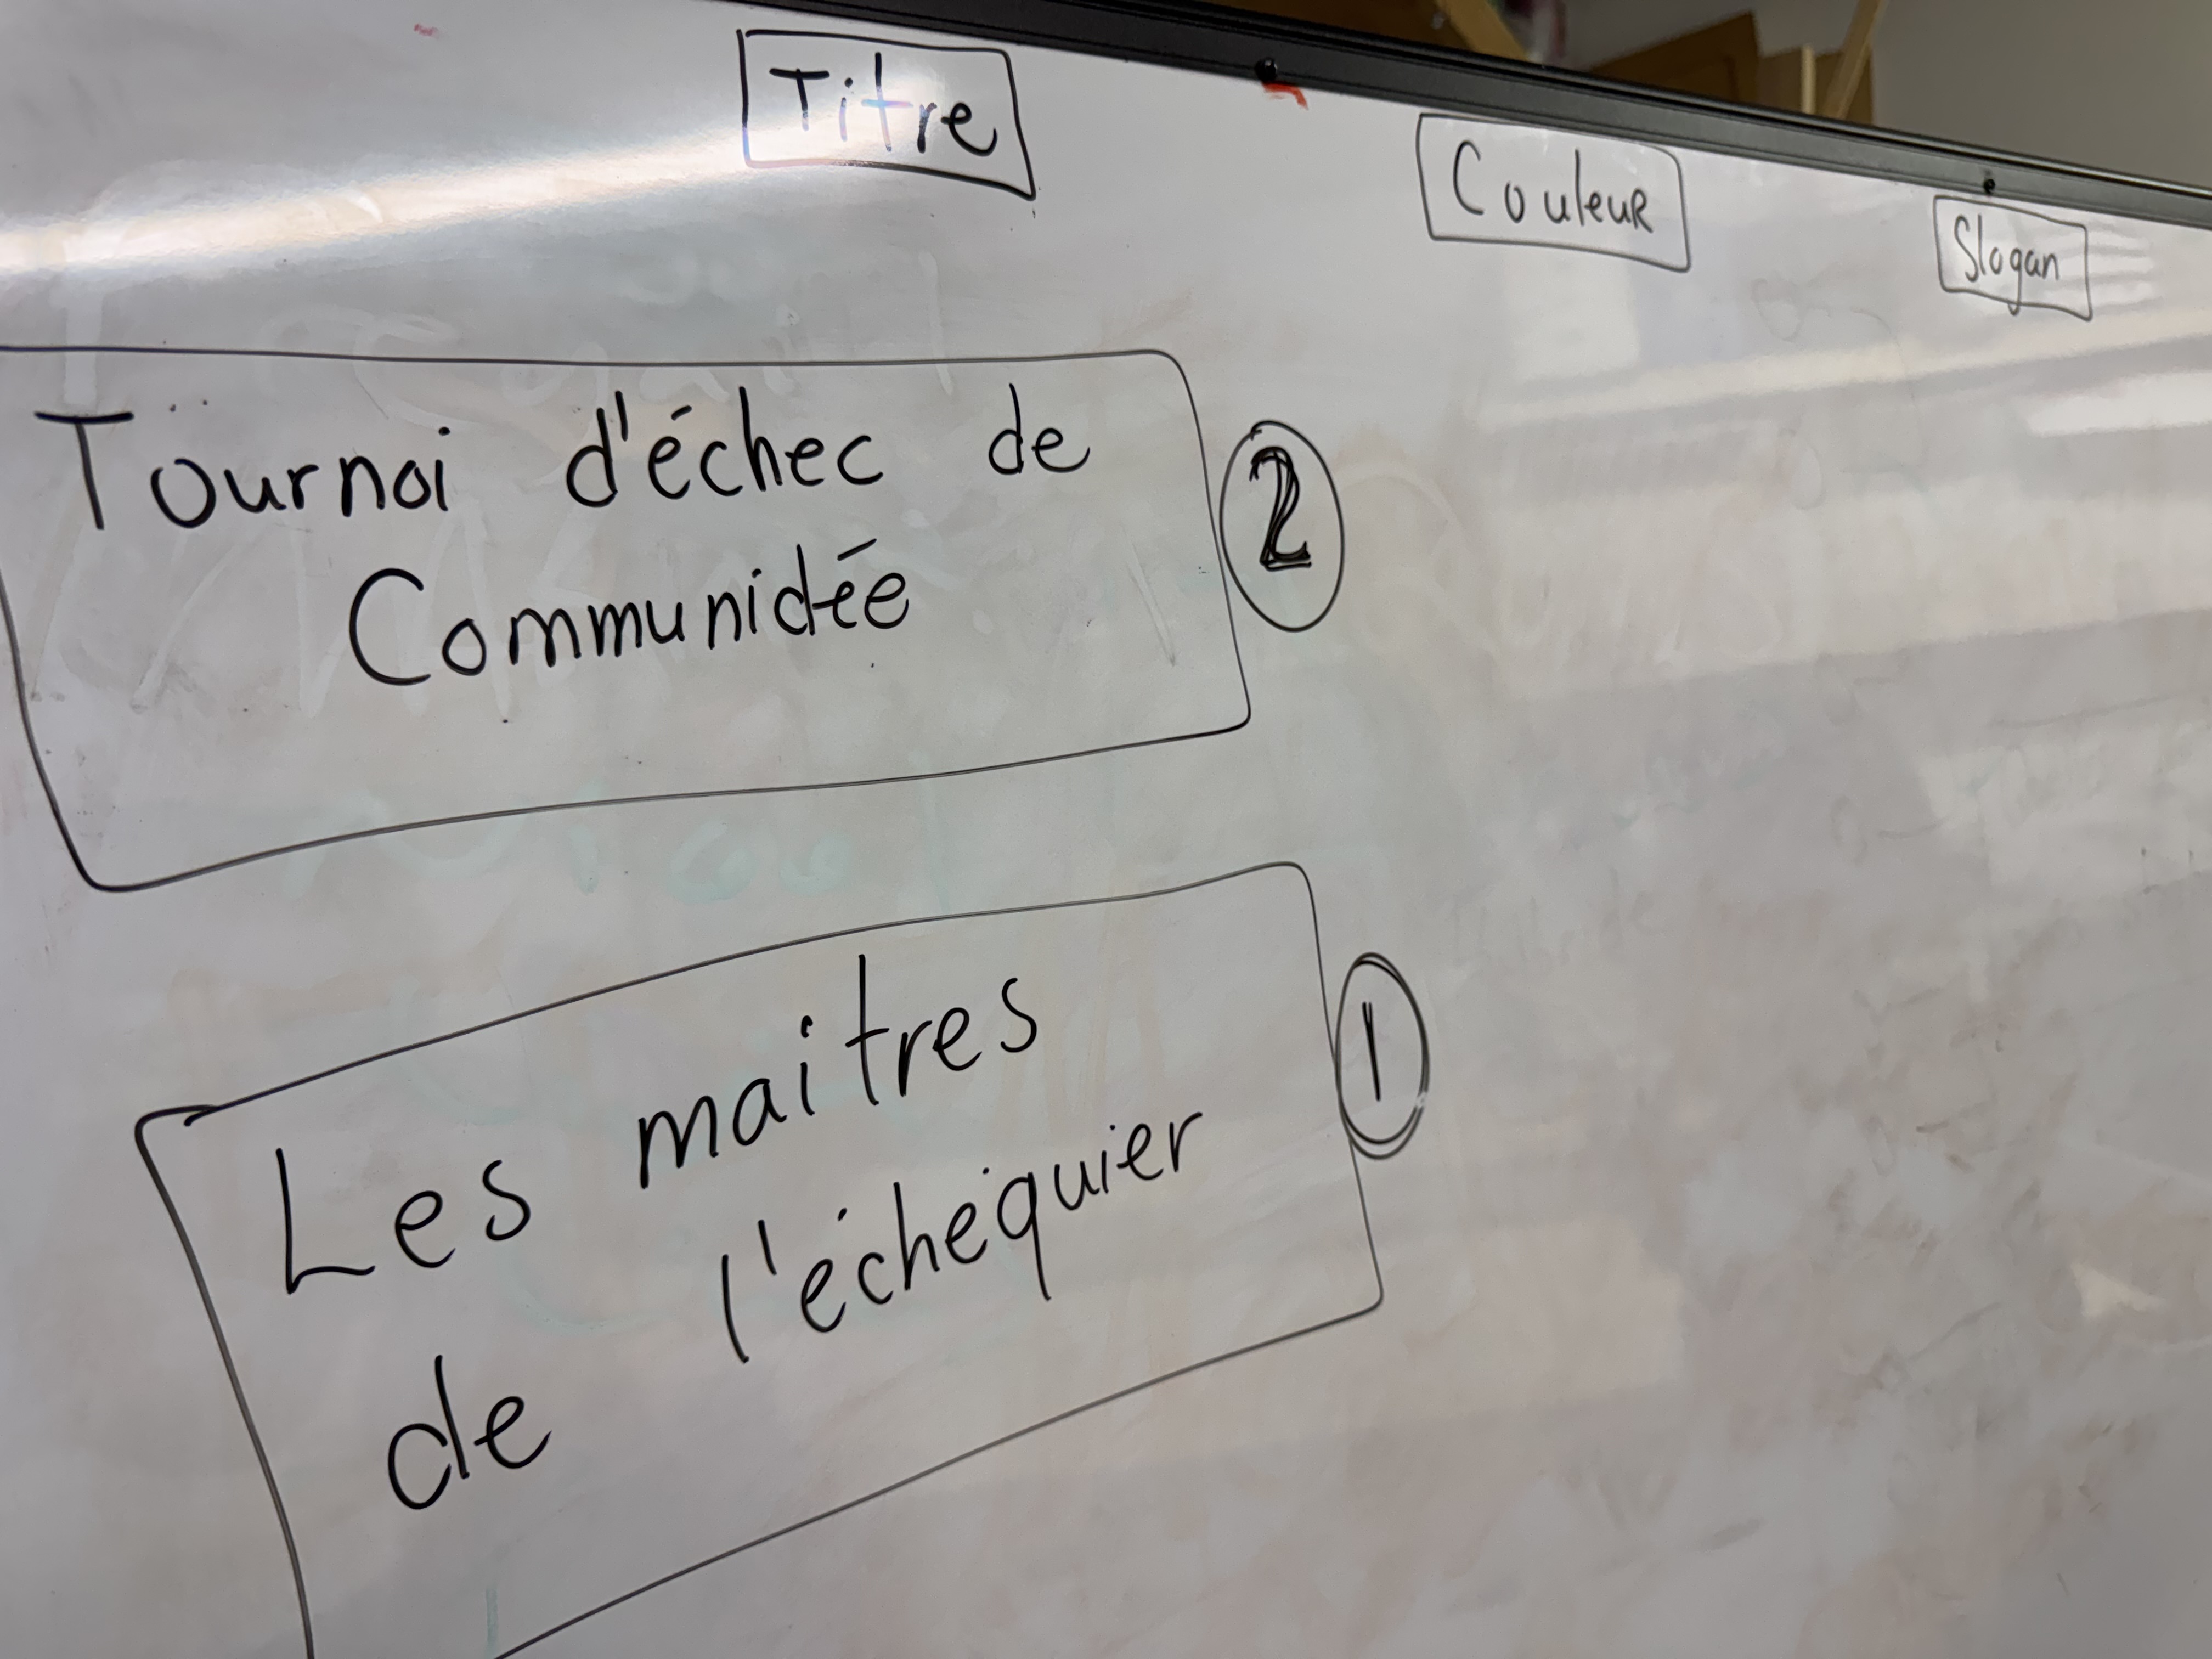 Titre
Couleur
Slogan
Tournoi d'échec de
Communidée
2
Les maitres
de l'échequier
1